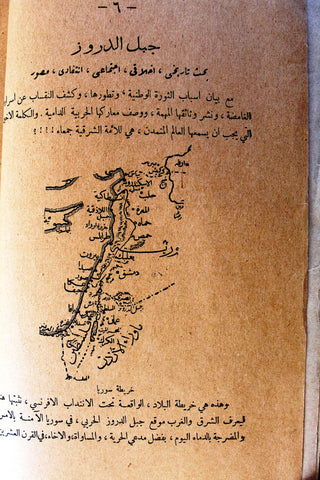 — ٦ —
جبل الدروز
بحث تاريخي ، اخلاقي ، اجتماعي ، انتقادي ، مصور
مع بيان اسباب الثورة الوطنية ، وتطورها ، وكشف النقاب عن اسرا
الغامضة ، ونشر وثائقها المهمة ، ووصف معاركها الحربية الدامية . والكلمة الا
التي يجب ان يسمعها العالم المتمدن ، هي للأمة الشرقية جمعاء !!!!
ماردين
حلب
انطاكية
المعرة
اللاذقية
حماه
حمص
طرابلس
بيروت
بعلبك
دمشق
خريطة سوريا
وهذه هي خريطة البلاد ، الواقعة تحت الانتداب الافرنسي ، نثبتها هنا
ليعرف الشرق والغرب موقع جبل الدروز الحربي ، في سوريا الآمنة بالامس
والمضرجة بالدماء اليوم ، بفضل مدعي الحرية ، والمساواة ، والاخاء ، في القرن العشرين